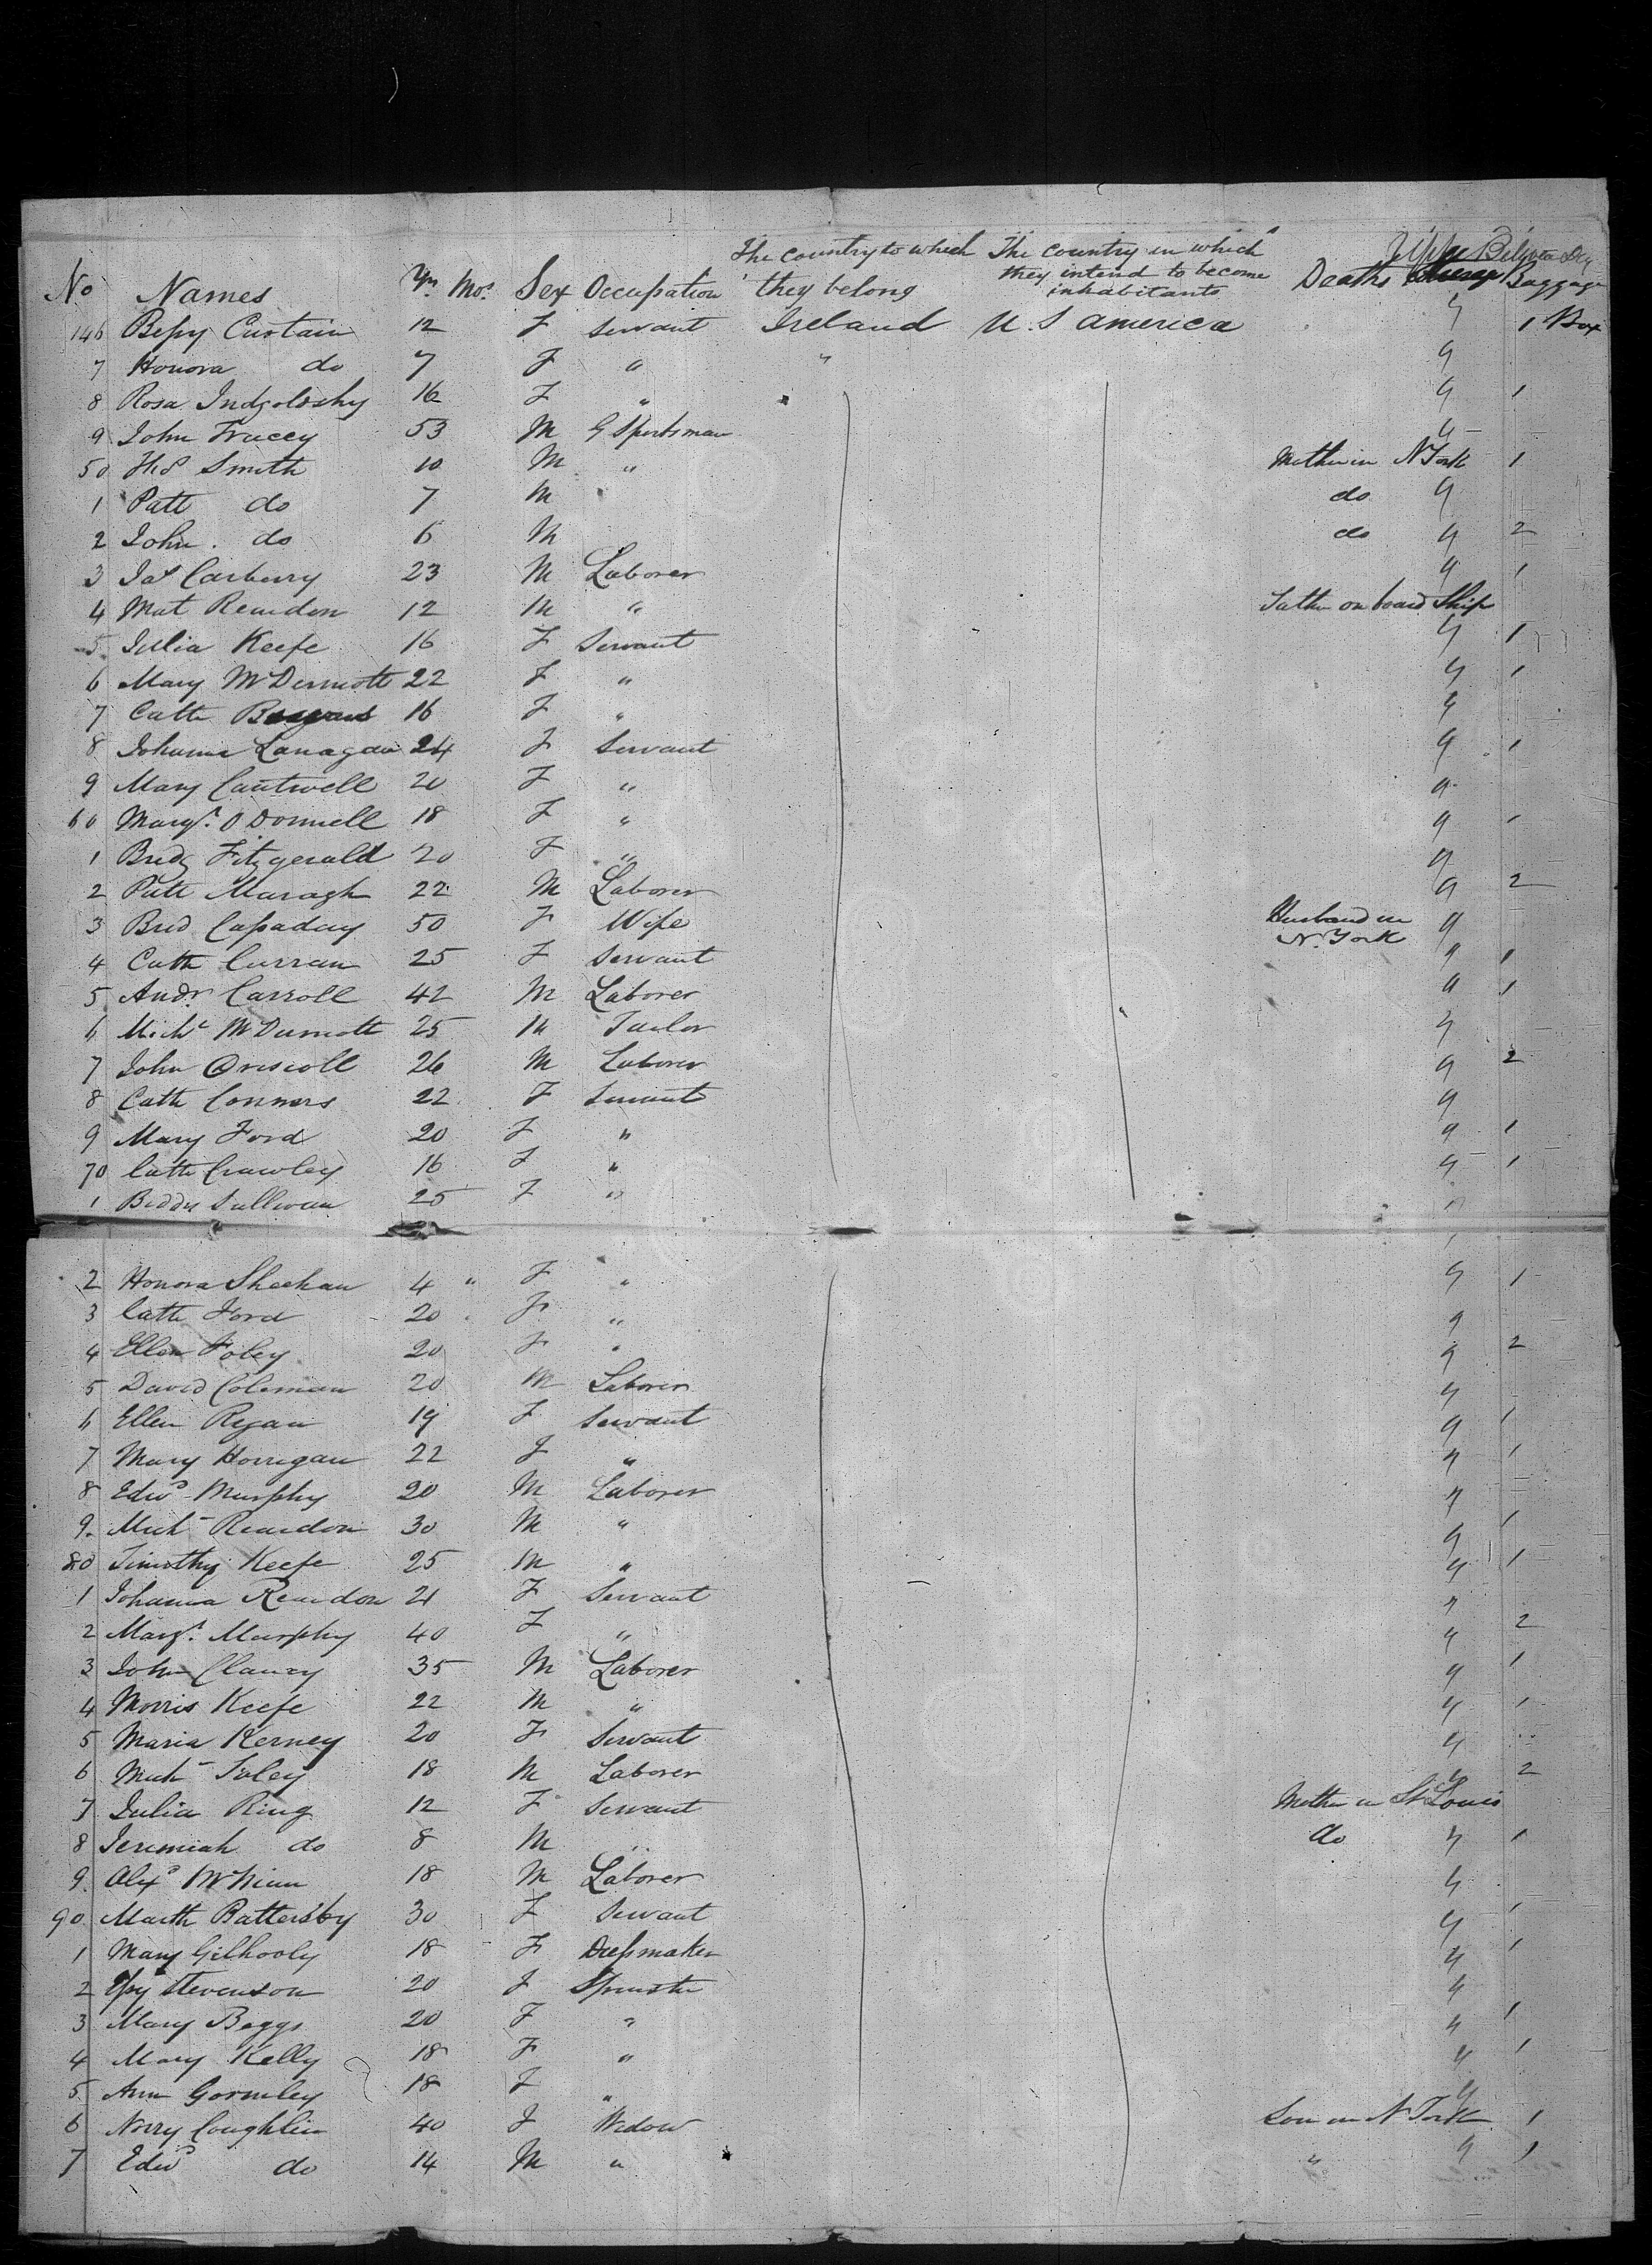 The country to which The country in which Upper Between Deck
No Names Yrs Mos. Sex Occupation they belong they intend to become inhabitants Deaths Baggage
146 Bessy Curtain 12 F Servant Ireland U.S America " 1 Box
7 Honora do 7 F " " "
8 Rosa Indgoldshy 16 F " " 1
9 John Tracey 53 M G Sportsman "
50 Smith 10 M " Mother in N York 1
1 Patt do 7 M do "
2 John. do 6 M do " 2
3 Jas Carberry 23 M Laborer " 1
4 Mat Reardon 12 M " Father on board Ship
5 Julia Keefe 16 F Servant " 1
6 Mary McDermott 22 F " " 1
7 Cath 16 F " "
8 Johanna Lanagan 24 F Servant " 1
9 Mary Cantwell 20 F " "
60 Margt. O Donnell 18 F " " 1
1 Bridg Fitzgerald 20 F " "
2 Patt Maragh 22 M Laborer " 2
3 Brid Capaday 50 F Wife Husband in N. York "
4 Cath Curran 25 F Servant " 1
5 Andr. Carroll 42 M Laborer " 1
6 Michl McDermott 25 M Tailor "
7 John Driscoll 26 M Laborer " 2
8 Cath Connors 22 F Servant "
9 Mary Ford 20 F " " 1
70 Cath Crawley 16 F " " 1
1 Biddy Sullivan 25 F " "
2 Honora Sheehan 4 " F " " 1
3 Cath Ford 20 F " "
4 Ellen Foley 20 F " " 2
5 David Coleman 20 M Laborer "
6 Ellen Regan 19 F Servant " 1
7 Mary Horrigan 22 F " " 1
8 Edwd Murphy 20 M Laborer "
9. Michl Reardon 30 M " " 1
80 Timothy Keefe 25 M " " 1
1 Johanna Reardon 21 F Servant "
2 Margt. Murphy 40 F " " 2
3 John Clancy 35 M Laborer " 1
4 Morris Keefe 22 M " " 1
5 Maria Kerney 20 F Servant "
6 Michl Foley 18 M Laborer " 2
7 Julia Ring 12 F Servant Mother in St Louis
8 Jeremiah do 8 M " do " 1
9. Alexr 18 M Laborer "
90 Marth Battersby 30 F Servant " 1
1 Mary Gilhooly 18 F Dressmaker " 1
2 Stevenson 20 F Spinster "
3 Mary Beggs 20 F " " 1
4 Mary Kelly 18 F " " 1
5 Ann Gormley 18 F " "
6 Norry Coughlin 40 F Widow Son in N York 1
7 Edwd do 14 M " " " 1